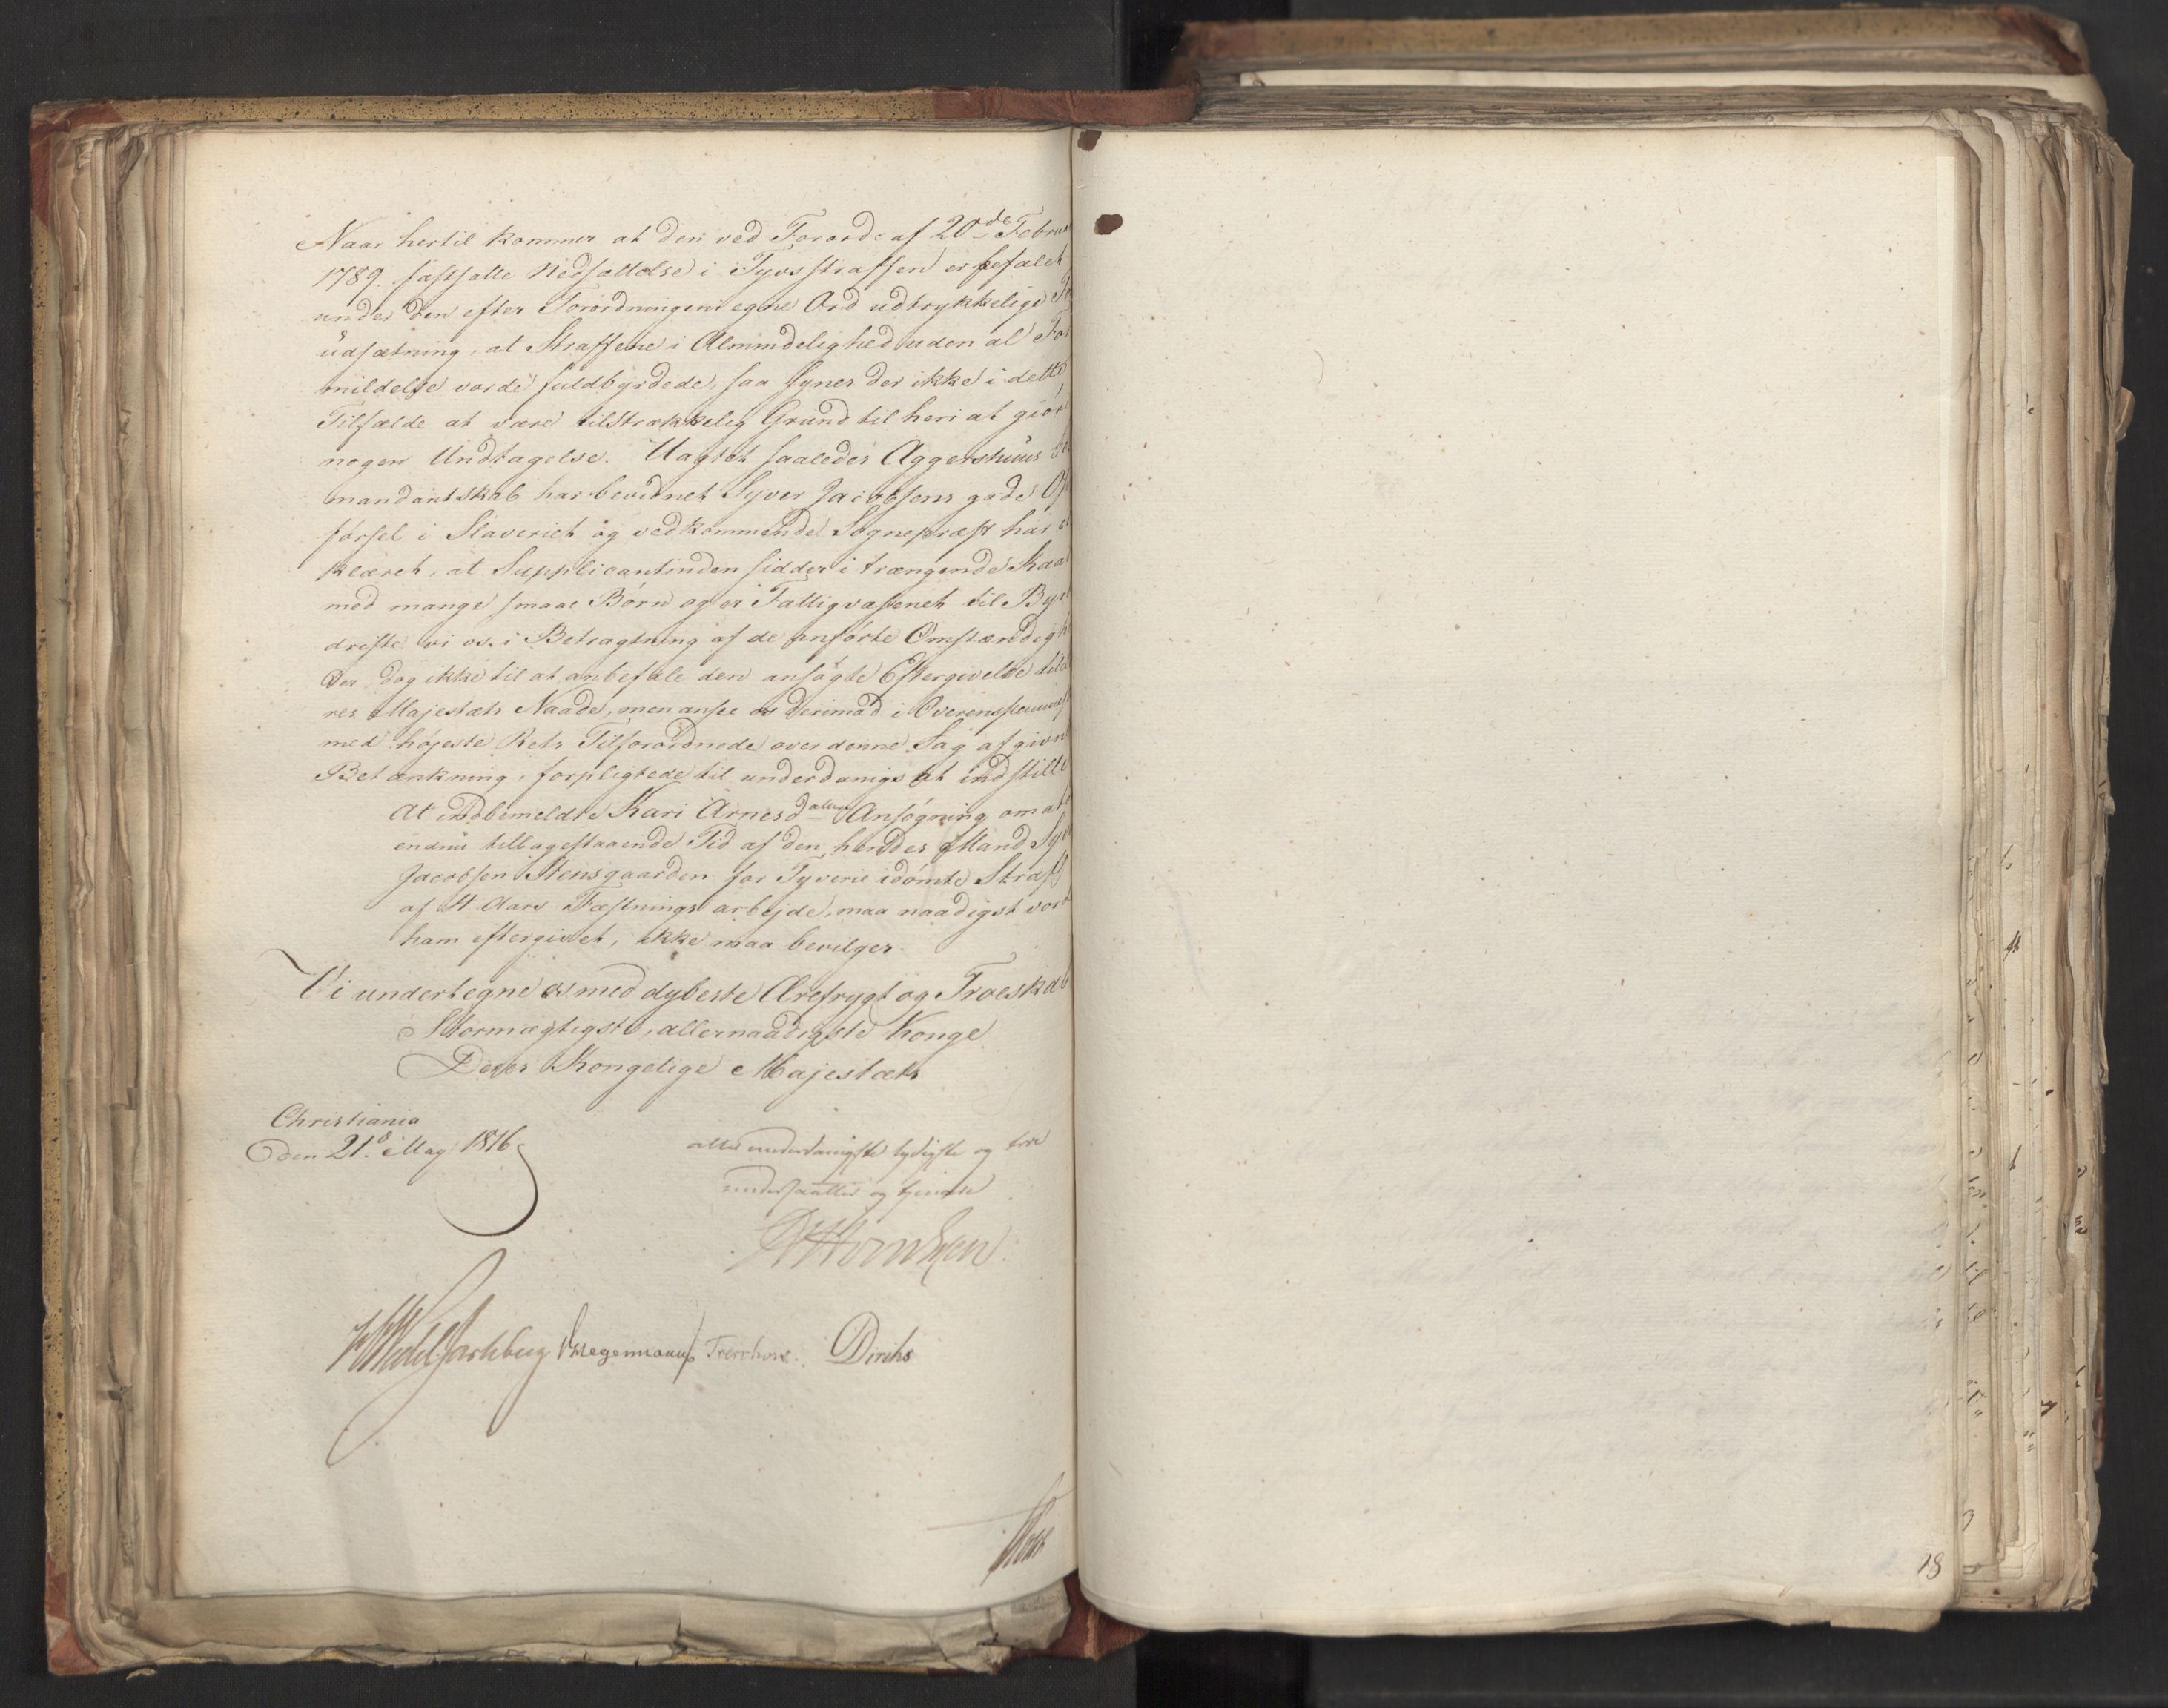 Naar hertil kommer at den ved Forord: af 20de Febru
1789. fastsatte Nedsættelse i Tyvsstraffen er befalet
under den efter Forordningens egne Ord udtrykkelige
udsætning, at Straffene i Almindelighed uden al For
mildelse vorde fuldbyrdede, saa synes der ikke i dette
Tilfælde at være tilstrækkelig Grund til heri at giöre
nogen Undtagelse. Uagtet saaledes Aggershuus
mandantskab har bevidnet Syver Jacobsens gode Op
försel i Slaveriet og vedkommende Sognepræst har er
klæret, at Supplicantinden sidder i trængende Kaar
med mange smaae Børn og er Fattigvæsenet til Byr
driste vi os i Betragtning af de anførte Omstændighe
der dog ikke til at anbefale den ansøgte Eftergivelse til De
res Majestæts Naade, men ansee os derimod i Overensstemmel
med højeste Rets Tilforordnedes over denne Sag afgivne
Betænkning, forpligtede til underdanigst at indstille
At indbemeldte Kari Arnesdatters Ansøgning om at
endnu tilbagestaaende Tid af den hendes Mand Syv
Jacobsen Stensgaarden for Tyverie idømte Straf
af 4 Aars Fæstningsarbejde, maa naadigst vorde
ham eftergivet, ikke maa bevilges.
Vi undertegne os med dybeste Ærefrygt og Troeskab
Stormægtigste, allernaadigste Konge
Deres Kongelige Majestæts
Christiania
den 21d. May 1816
allerunderdanigste lydigste og troe
undersaatter og tjenere
Wedel Jarlsberg Hegermann Treschow. Diriks
18